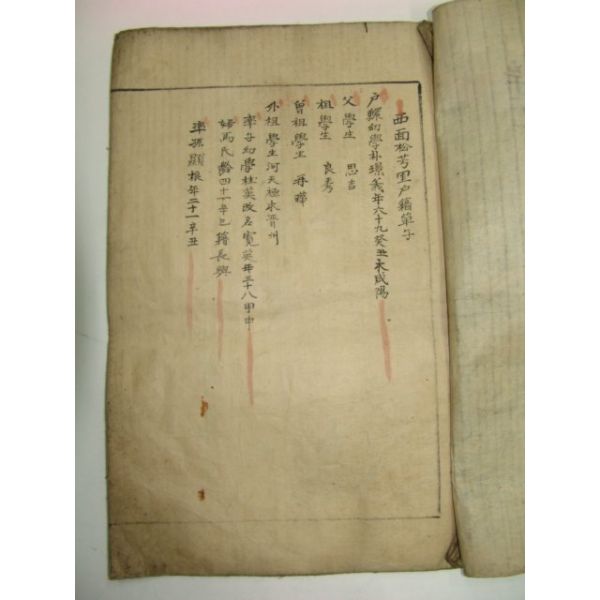 西面松芳里戶籍草子
戶鰥幼學朴璟義年六十九癸丑本咸陽
父學生 思吉
祖學生 良秀
曾祖學生
外祖學生河天極本晋州
率子幼學桂英改名寬英年三十八甲申
婦馬氏齡四十一辛巳籍長興
率孫顯根年二十一辛丑